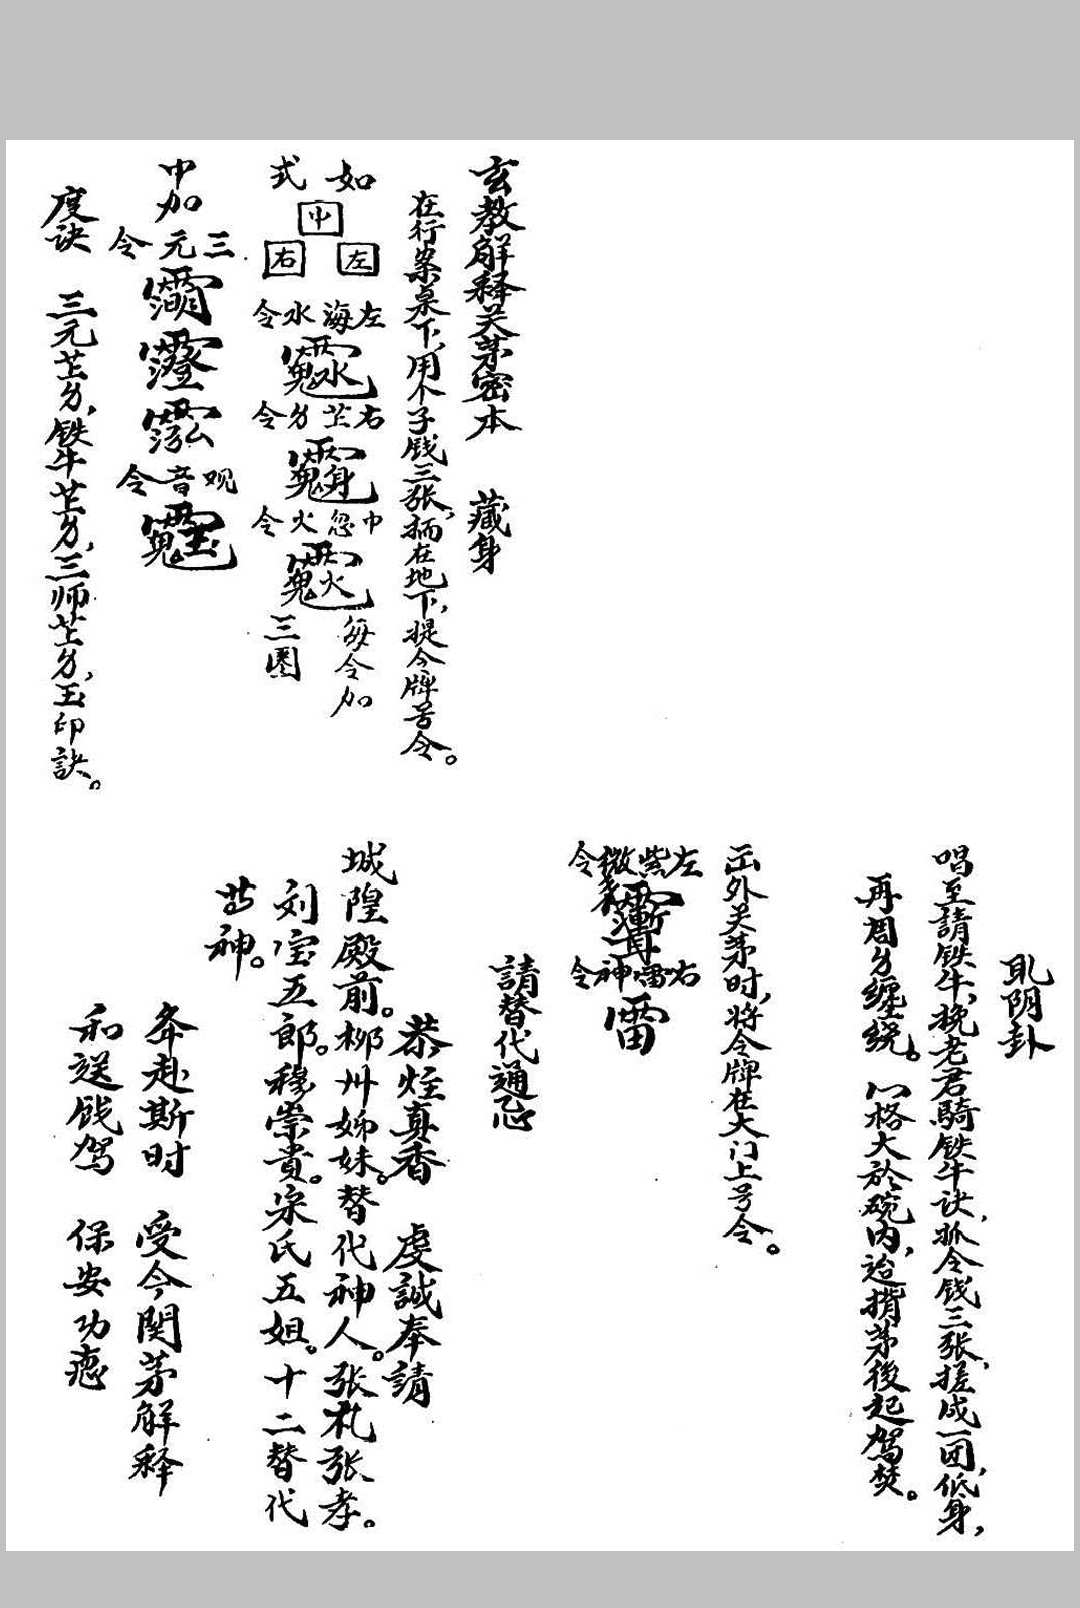 玄教解释关茅密本　藏身
在行案桌下,用个子钱三张,插在地下,提令牌号令。
如式
中
左
右
左海水令
右芷分令
中忽火令
每令加三圈
中加
三元令
观音令
度诀　三元芷分,铁牛芷分,三师芷分,玉印訣。
阴卦
唱至請铁牛,挽老君騎铁牛诀,抓令钱三张,搓成一团,低身,
再周身缠绕。格大於碗内,茅後起驾焚。
出外关茅时,将令牌在大门上号令。
左紫微令
右雷神令
雷
請替代通
恭炷真香　虔誠奉請
城隍殿前。柳州姊妹。替代神人。张札张孝。
刘宝五郎。穆崇貴。宋氏五姐。十二替代
神。
奔赴斯时　受今関茅解释
和送钱驾　保安功德